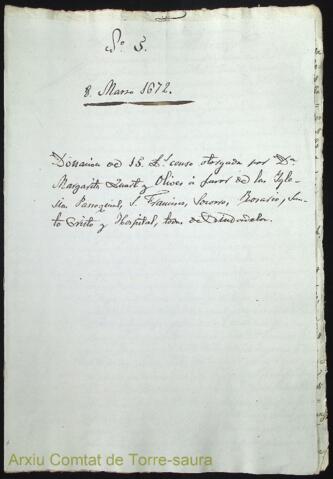 Nº 5.
8. Marzo 1672.
Donacion de 15 L.s censo otorgada por D.ª
Margarita Quart y Olives á favor de las Ygle-
sias Parroquial, S. Francisco, Socorro, Rosario, San-
to Cristo y Hospital, todas de Ciudadela.
Arxiu Comtat de Torre-saura